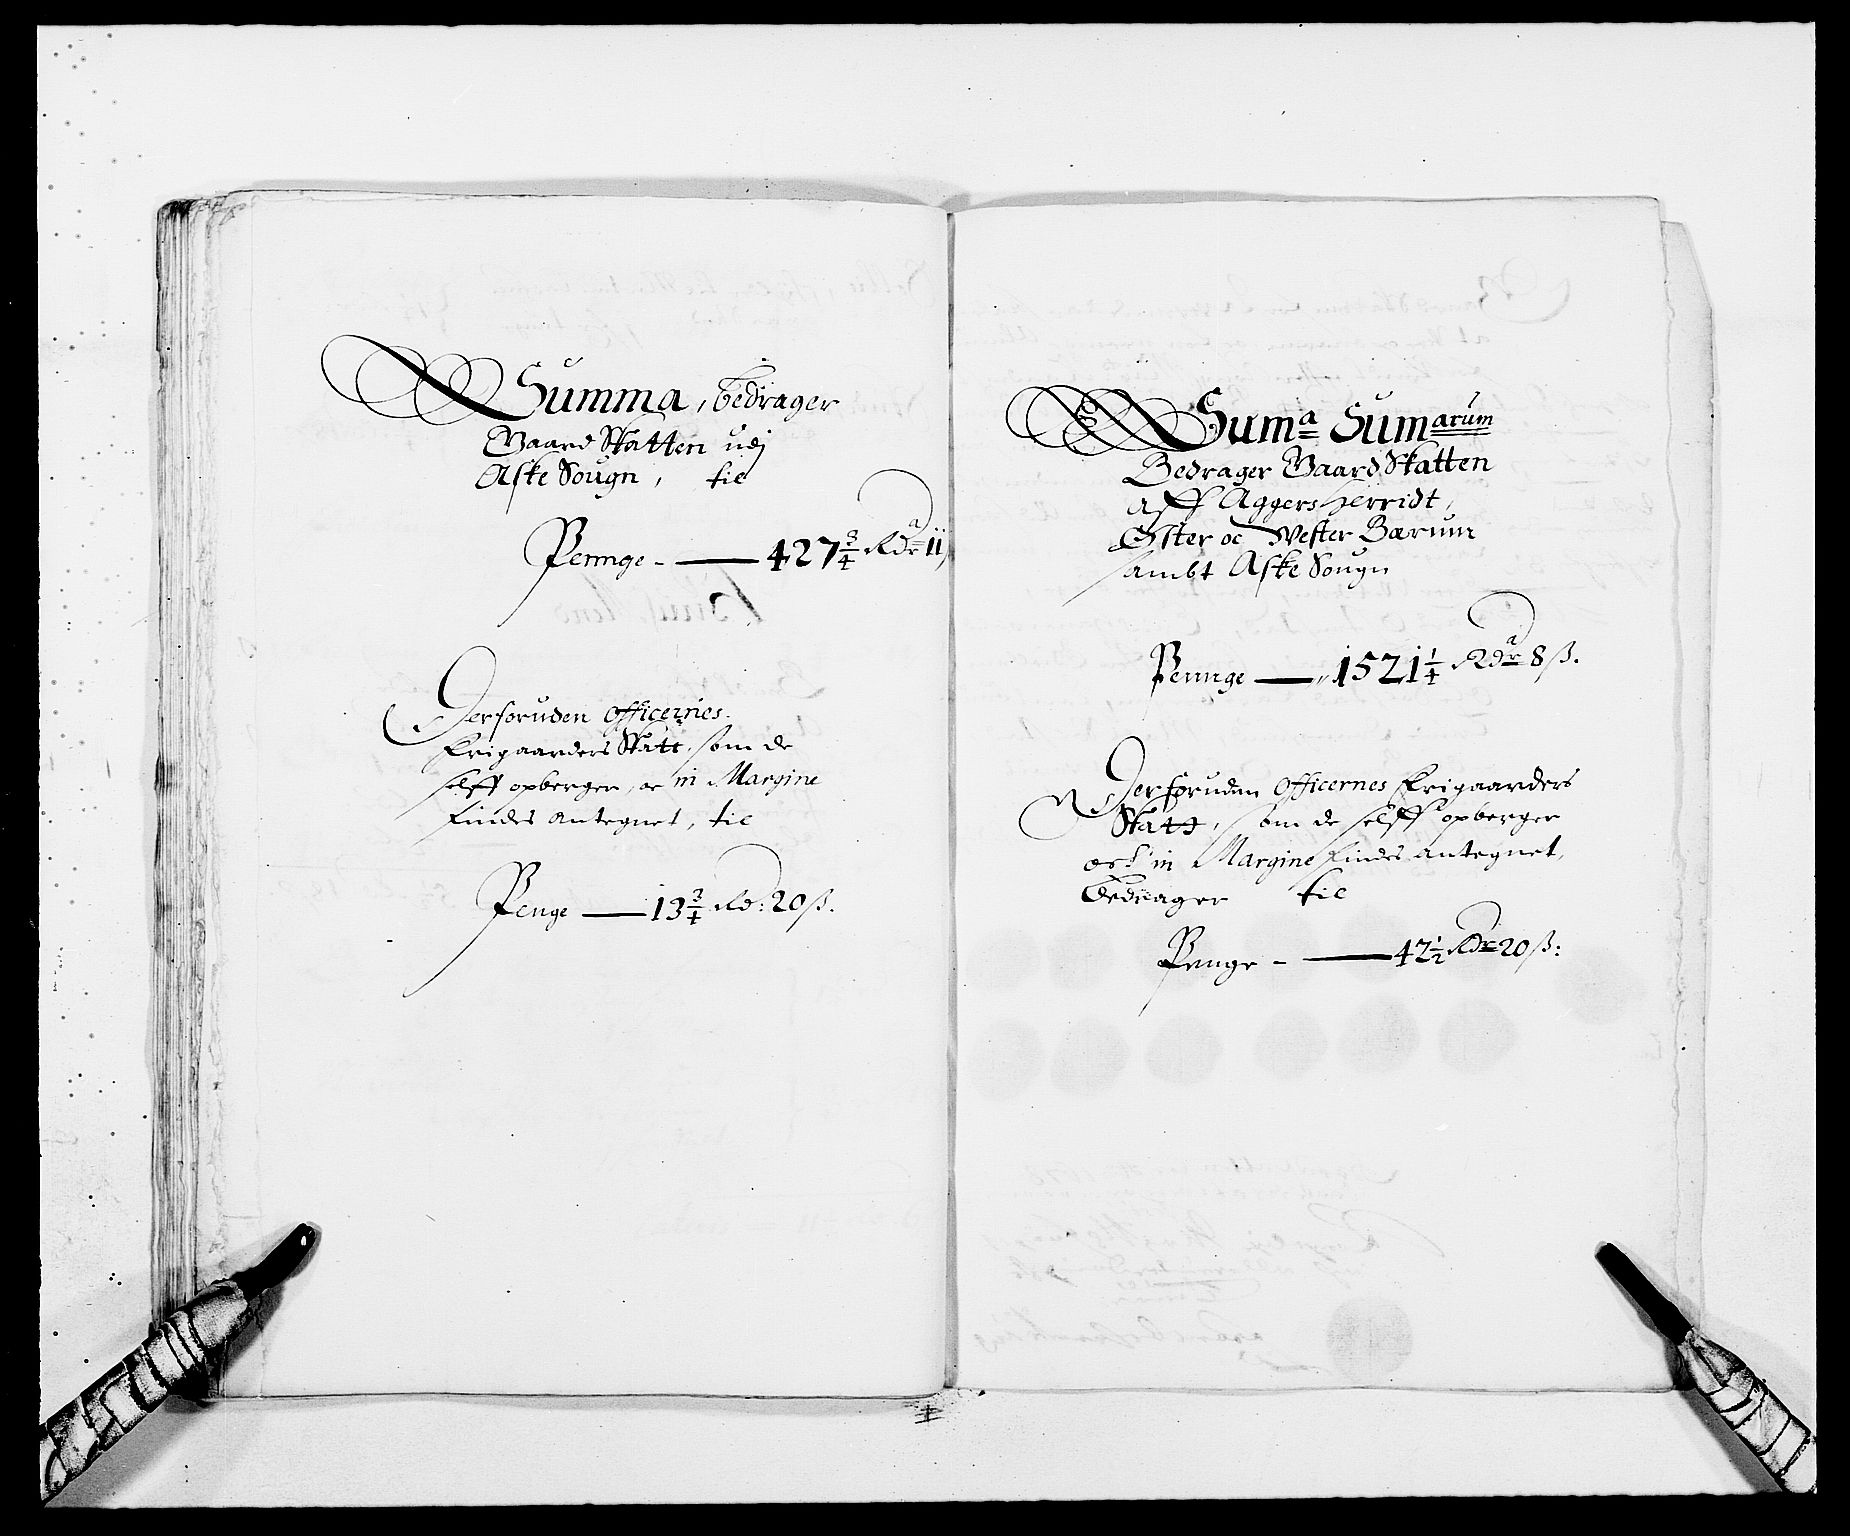 Summa, bedrager
Gaard Skatten udj
Aske Sougn, til
Pennge - — 427 3/4 Rdr 11
Derforuden Officernes
Frigaarders Skatt, som de
selff opberger, oc in Margine
findes antegnet, til
Penge — 13 3/4 Rd: 20 ß.
Sum̅a Sum̅arum
Bedrager Gaard Skatten
aff Aggers Herridt,
Øster oc Wester Bærum
sambt Aske Sougn
Pennge — 1521 1/4 Rdr 8 ß.
Derforuden Officernes Frigaarders
Skatt, som de selff opberger
oc in Margine findes antegnet,
Bedrager til
Penge - — 42 1/2 Rdr 20 ß: